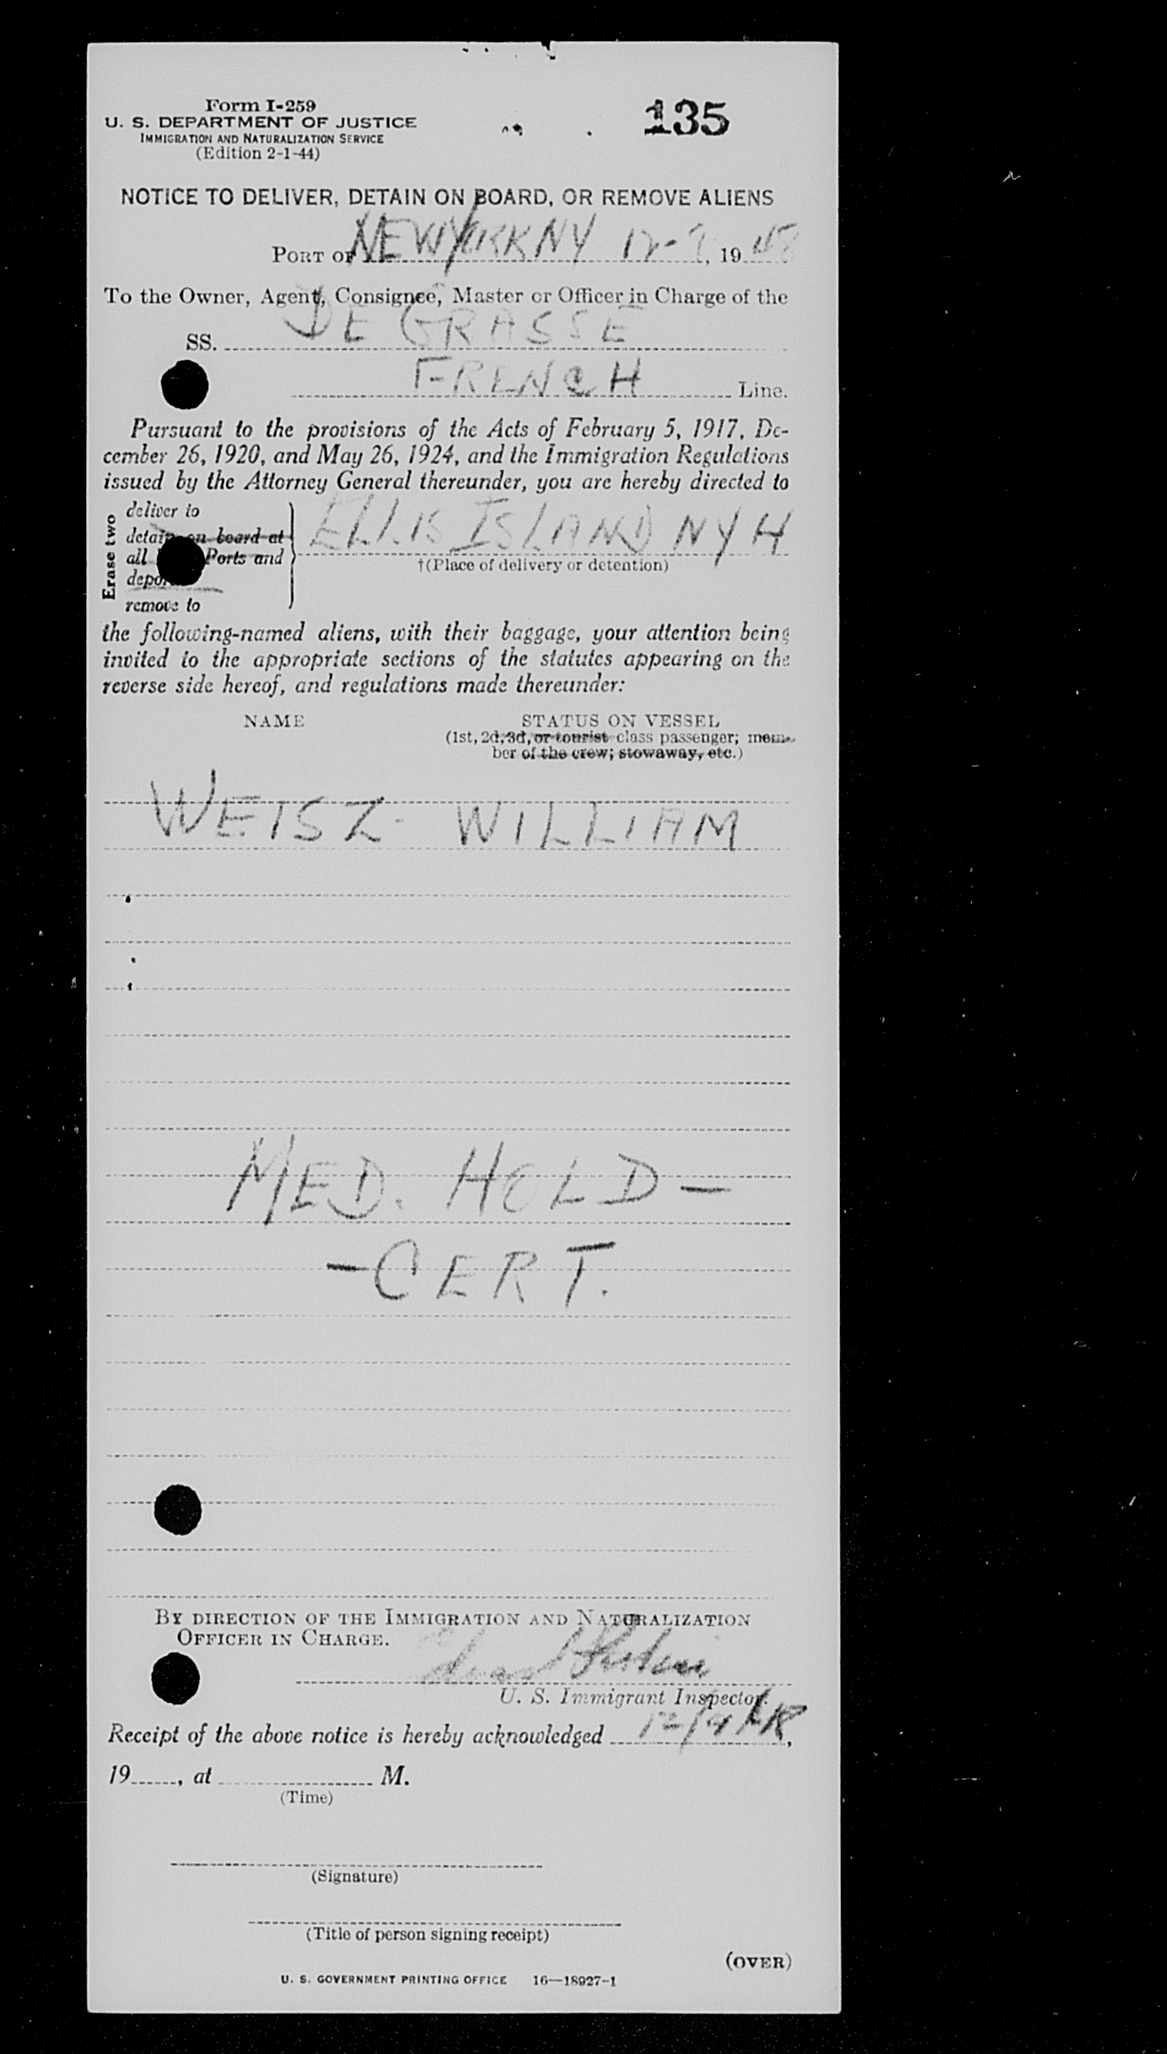 Form I-259
135
U. S. DEPARTMENT OF JUSTICE
IMMIGRATION AND NATURALIZATION SERVICE
(Edition 2-1-44)
NOTICE TO DELIVER, DETAIN ON BOARD, OR REMOVE ALIENS
PORT OF NEW YORK NY 12-9, 1948
To the Owner, Agent, Consignee, Master or Officer in Charge of the
SS. DE GRASSE
FRENCH Line.
Pursuant to the provisions of the Acts of February 5, 1917, De-
cember 26, 1920, and May 26, 1924, and the Immigration Regulations
issued by the Attorney General thereunder, you are hereby directed to
Erase two
deliver to
detain on board at
all Ports and
deport
remove to
ELLIS ISLAND NYH
†(Place of delivery or detention)
the following-named aliens, with their baggage, your attention being
invited to the appropriate sections of the statutes appearing on the
reverse side hereof, and regulations made thereunder:
NAME STATUS ON VESSEL
(1st, 2d, 3d, or tourist class passenger; mem-
ber of the crew; stowaway, etc.)
WEISZ - WILLIAM
MED. HOLD -
- CERT.
BY DIRECTION OF THE IMMIGRATION AND NATURALIZATION
OFFICER IN CHARGE.
U. S. Immigrant Inspector.
Receipt of the above notice is hereby acknowledged 12/9,
19......, at M.
(Time)
(Signature)
(Title of person signing receipt)
(OVER)
U. S. GOVERNMENT PRINTING OFFICE 16—18927-1